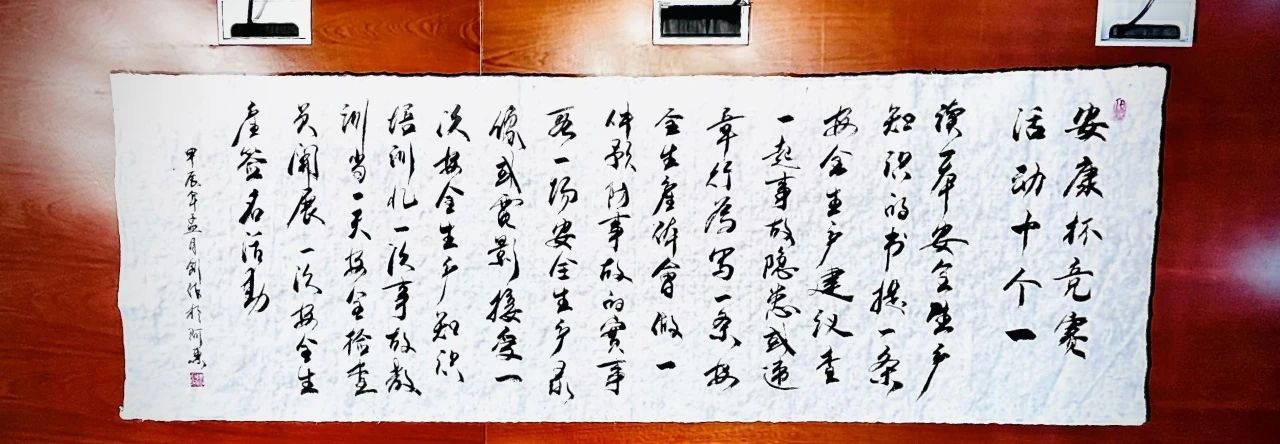 安康杯竞赛
活动十个一
读一本安全生产
知识的书提一条
安全生产建议查
一起事故隐患或违
章行为写一条安
全生產体會做一
件预防事故的實事
看一场安全生产录
像或電影接受一
次安全生产知识
培训忆一次事故教
训当一天安全检查
员開展一次安全生
產签名活動
甲辰年孟月 作於阿